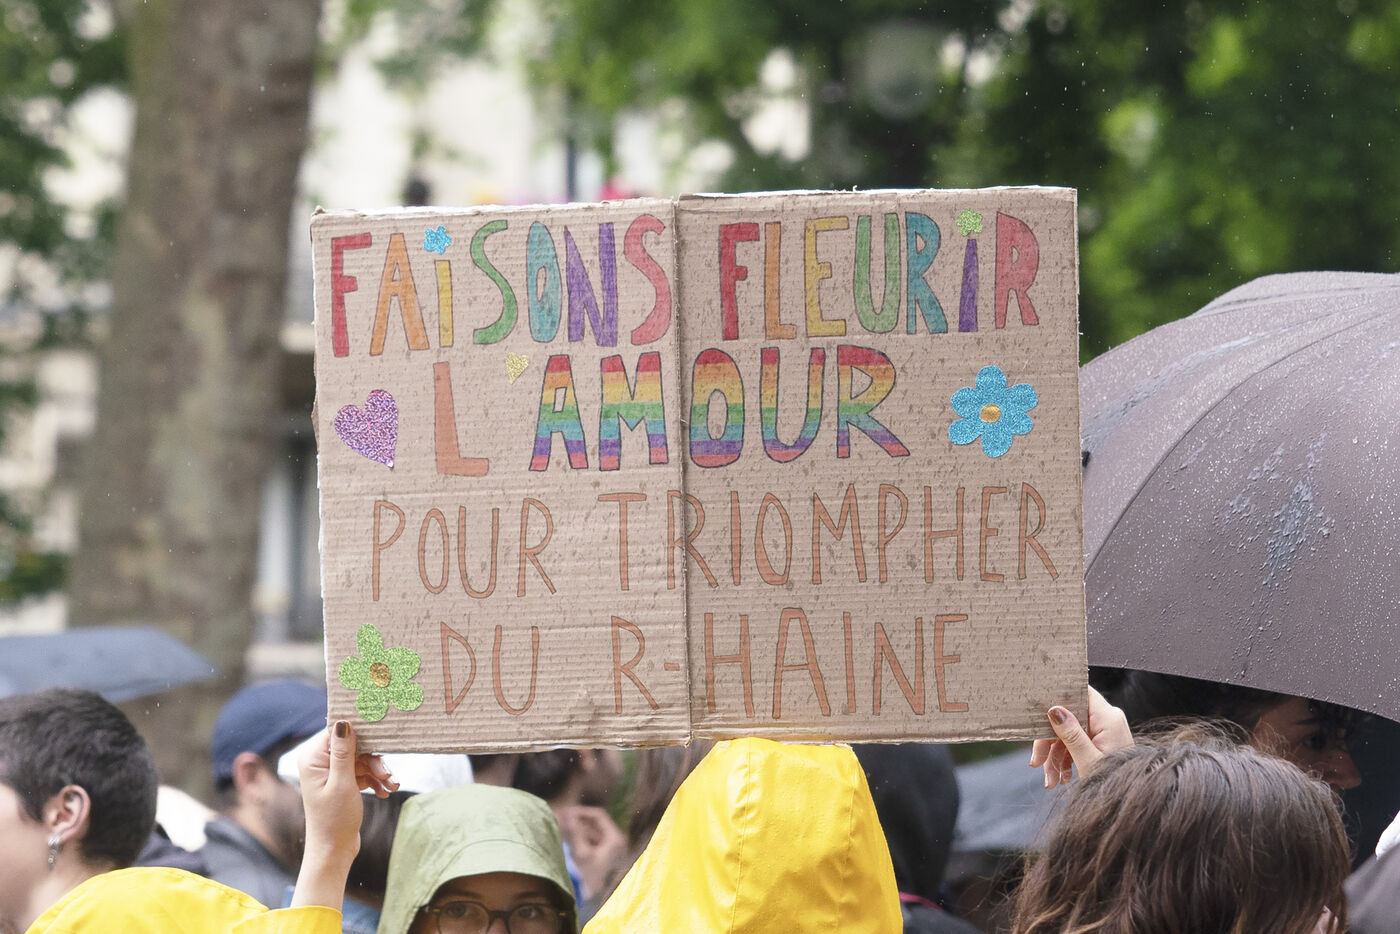 FAiSONS FLEURiR
L'AMOUR
POUR TRIOMPHER
DU R-HAINE